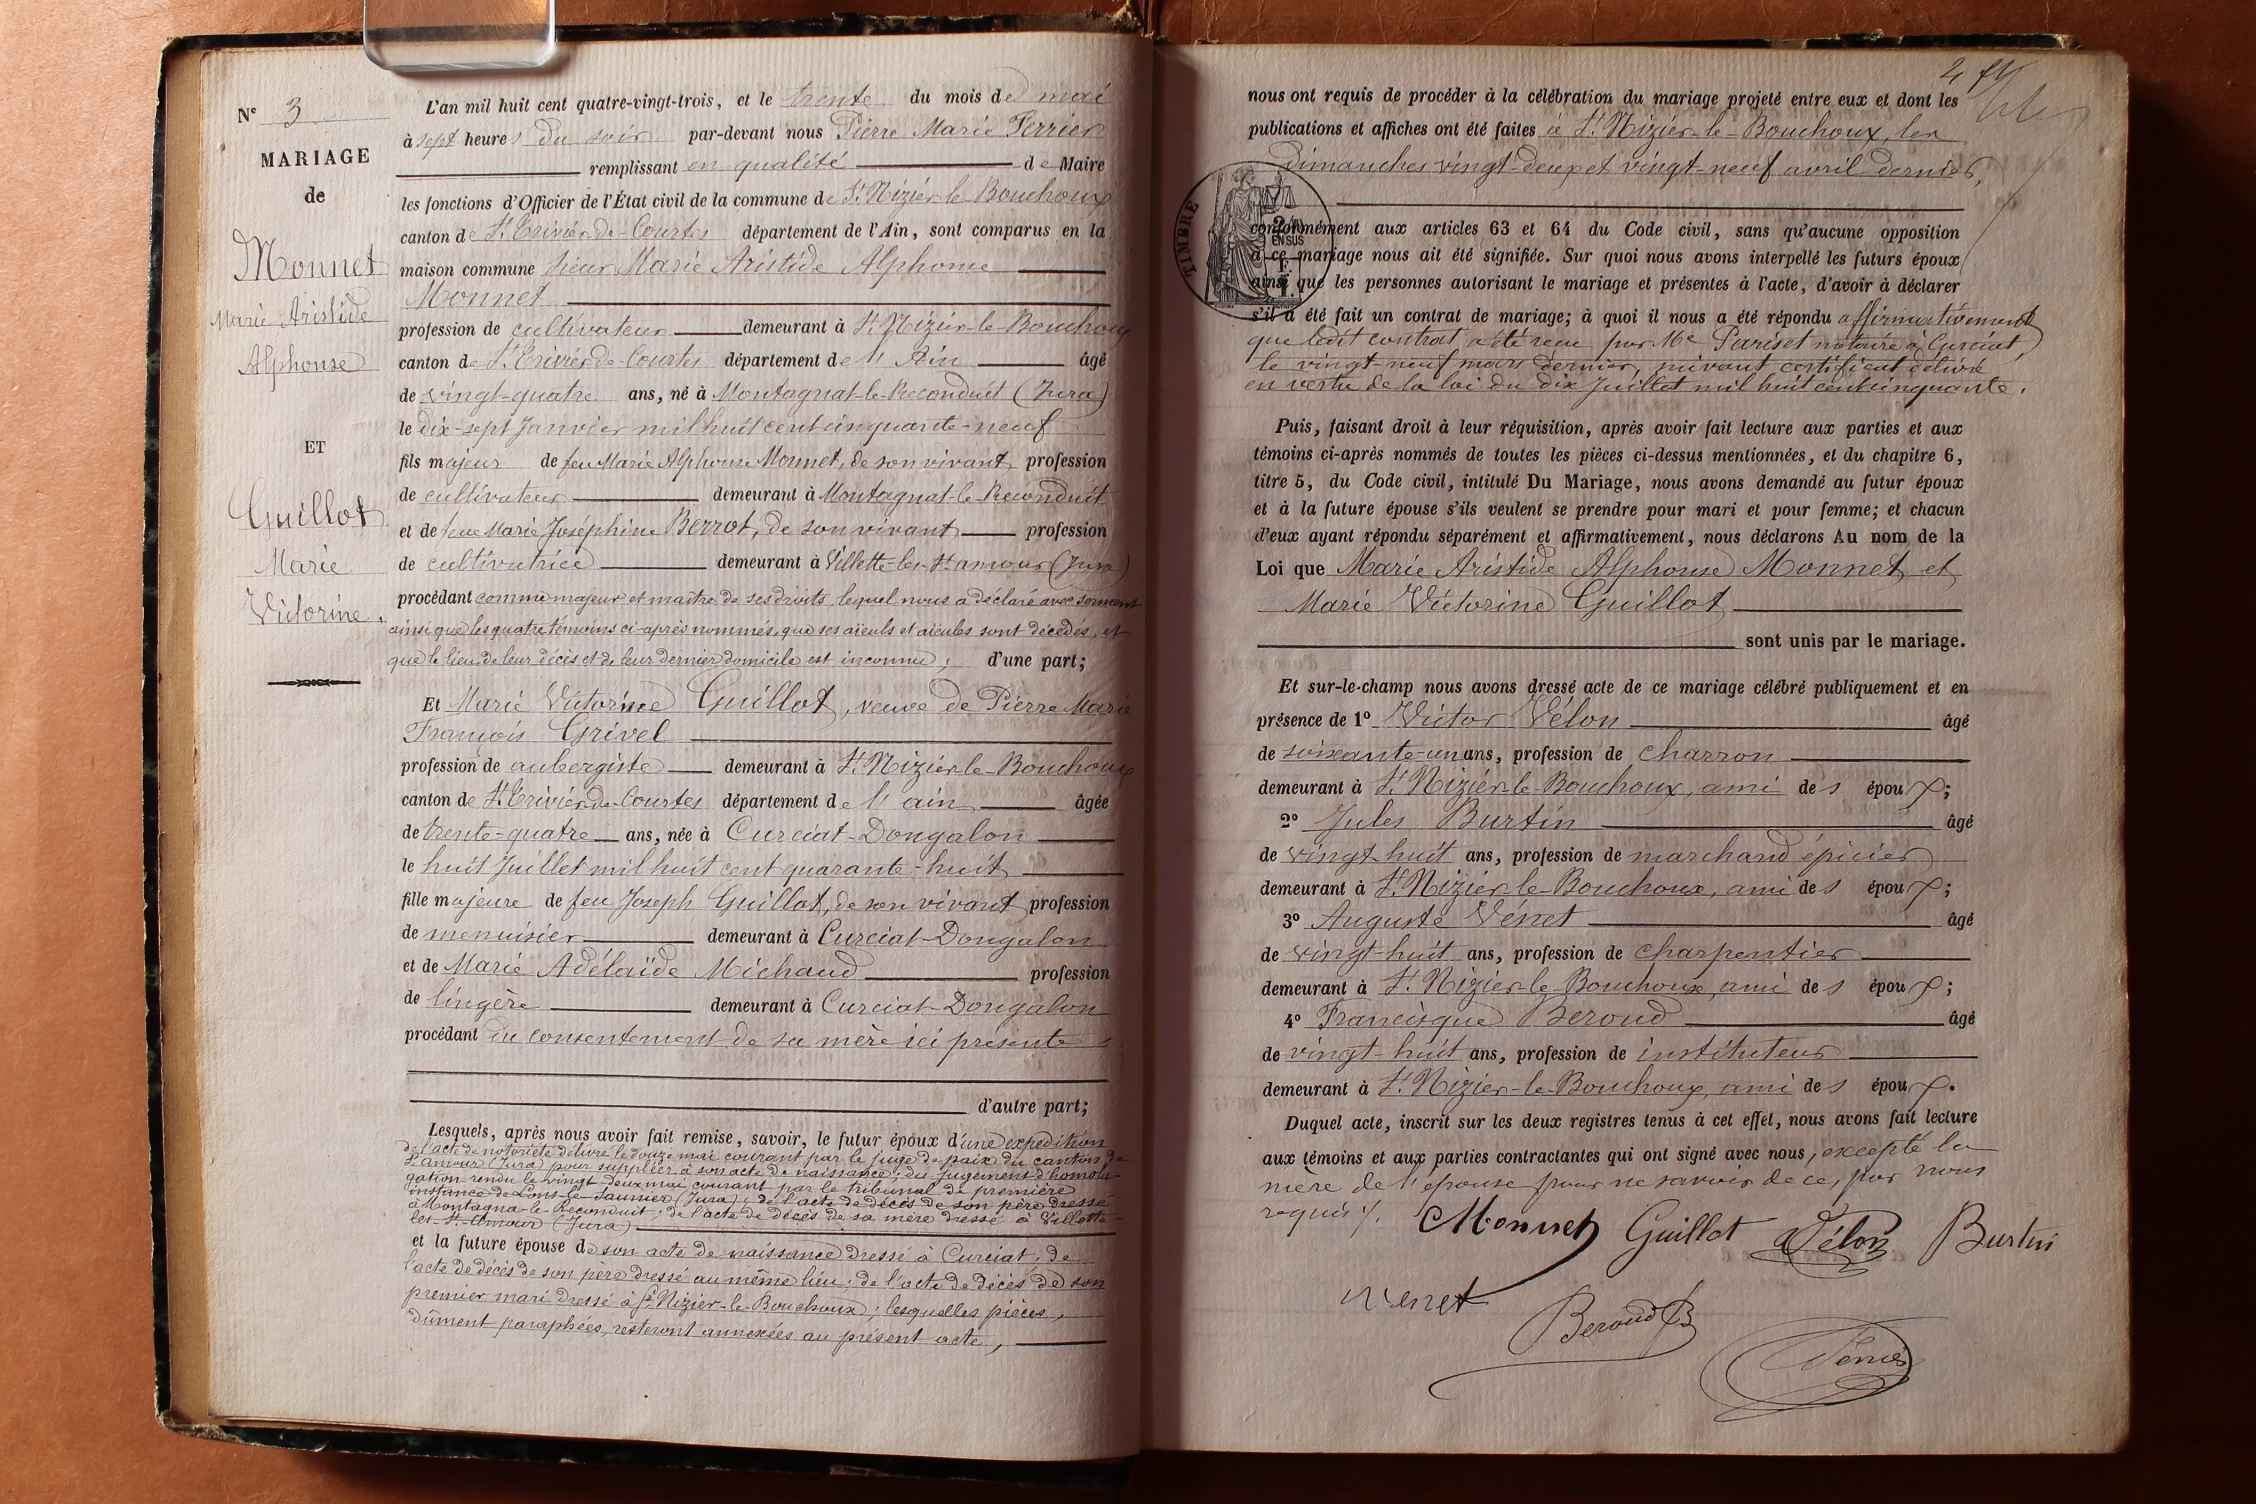 N° 3
MARIAGE
de
Monnet
Marie Aristide
Alphonse
ET
Guillot
Marie
Victorine.
L'an mil huit cent quatre-vingt-trois, et le trente du mois de mai
à sept heures du soir par-devant nous Pierre Marie Ferrier
remplissant en qualité de Maire
les fonctions d'Officier de l'État civil de la commune de St Nizier-le-Bouchoux
canton de St Trivier-de-Courtes département de l'Ain, sont comparus en la
maison commune sieur Marie Aristide Alphonse
Monnet
profession de cultivateur demeurant à St Nizier-le-Bouchoux
canton de St Trivier-de-Courtes département de l'Ain âgé
de vingt-quatre ans, né à Montagnat-le-Reconduit (Jura)
le dix-sept Janvier mil huit cent cinquante-neuf
fils majeur de feu Marie Alphonse Monnet, de son vivant profession
de cultivateur demeurant à Montagnat-le-Reconduit
et de feue Marie Joséphine Berrot, de son vivant profession
de cultivatrice demeurant à Villette-les-St amour (Jura)
procédant comme majeur et maître de ses droits, lequel nous a déclaré avec serment
ainsi que les quatre témoins ci-après nommés, que ses aïeuls et aïeules sont décédés, et
que le lieu de leur décès et de leur dernier domicile est inconnu; d'une part;
Et Marie Victorine Guillot, veuve de Pierre Marie
François Grivel
profession de aubergiste demeurant à St Nizier-le-Bouchoux
canton de St Trivier-de-Courtes département de l'ain âgée
de trente-quatre ans, née à Curciat-Dongalon
le huit Juillet mil huit cent quarante-huit
fille majeure de feu Joseph Guillot, de son vivant profession
de menuisier demeurant à Curciat-Dongalon
et de Marie Adélaïde Michaud profession
de lingère demeurant à Curciat-Dongalon
procédant du consentement de sa mère ici présente
d'autre part;
Lesquels, après nous avoir fait remise, savoir, le futur époux d'une expédition
de l'acte de notoriété délivré le douze mai courant par le juge de paix du canton de
St amour (Jura) pour suppléer à son acte de naissance; du jugement d'homolo-
gation rendu le vingt deux mai courant par le tribunal de première
instance de Lons-le-Saunier (Jura); de l'acte de décès de son père dressé
à Montagna-le-Reconduit; de l'acte de décès de sa mère dressé à Villette-
les-St-Amour (Jura)
et la future épouse de son acte de naissance dressé à Curciat; de
l'acte de décès de son père dressé au même lieu; de l'acte de décès de son
premier mari dressé à St Nizier-le-Bouchoux; lesquelles pièces,
dûment paraphées, resteront annexées au présent acte,
nous ont requis de procéder à la célébration du mariage projeté entre eux et dont les
publications et affiches ont été faites à St Nizier-le-Bouchoux, les
Dimanches vingt-deux et vingt-neuf avril derniers,
TIMBRE
conformément aux articles 63 et 64 du Code civil, sans qu'aucune opposition
à ce mariage nous ait été signifiée. Sur quoi nous avons interpellé les futurs époux
ainsi que les personnes autorisant le mariage et présentes à l'acte, d'avoir à déclarer
s'il a été fait un contrat de mariage; à quoi il nous a été répondu affirmativement
que ledit contrat a été reçu par Me Pariset notaire à Curciat,
le vingt-neuf mars dernier, suivant certificat délivré
en vertu de la loi du dix Juillet mil huit cent cinquante.
Puis, faisant droit à leur réquisition, après avoir fait lecture aux parties et aux
témoins ci-après nommés de toutes les pièces ci-dessus mentionnées, et du chapitre 6,
titre 5, du Code civil, intitulé Du Mariage, nous avons demandé au futur époux
et à la future épouse s'ils veulent se prendre pour mari et pour femme; et chacun
d'eux ayant répondu séparément et affirmativement, nous déclarons Au nom de la
Loi que Marie Aristide Alphonse Monnet et
Marie Victorine Guillot
sont unis par le mariage.
Et sur-le-champ nous avons dressé acte de ce mariage célébré publiquement et en
présence de 1° Victor Vélon âgé
de soixante-un ans, profession de charron
demeurant à St Nizier-le-Bouchoux, ami des époux;
2° Jules Burtin âgé
de vingt-huit ans, profession de marchand épicier
demeurant à St Nizier-le-Bouchoux, ami des époux;
3° Auguste Vénet âgé
de vingt-huit ans, profession de charpentier
demeurant à St Nizier-le-Bouchoux, ami des époux;
4° Francisque Beroud âgé
de vingt-huit ans, profession de instituteur
demeurant à St Nizier-le-Bouchoux, ami des époux.
Duquel acte, inscrit sur les deux registres tenus à cet effet, nous avons fait lecture
aux témoins et aux parties contractantes qui ont signé avec nous, excepté la
mère de l'épouse pour ne savoir de ce, par nous
requis.
Monnet Guillot Vélon Burtin
venet
Beroud